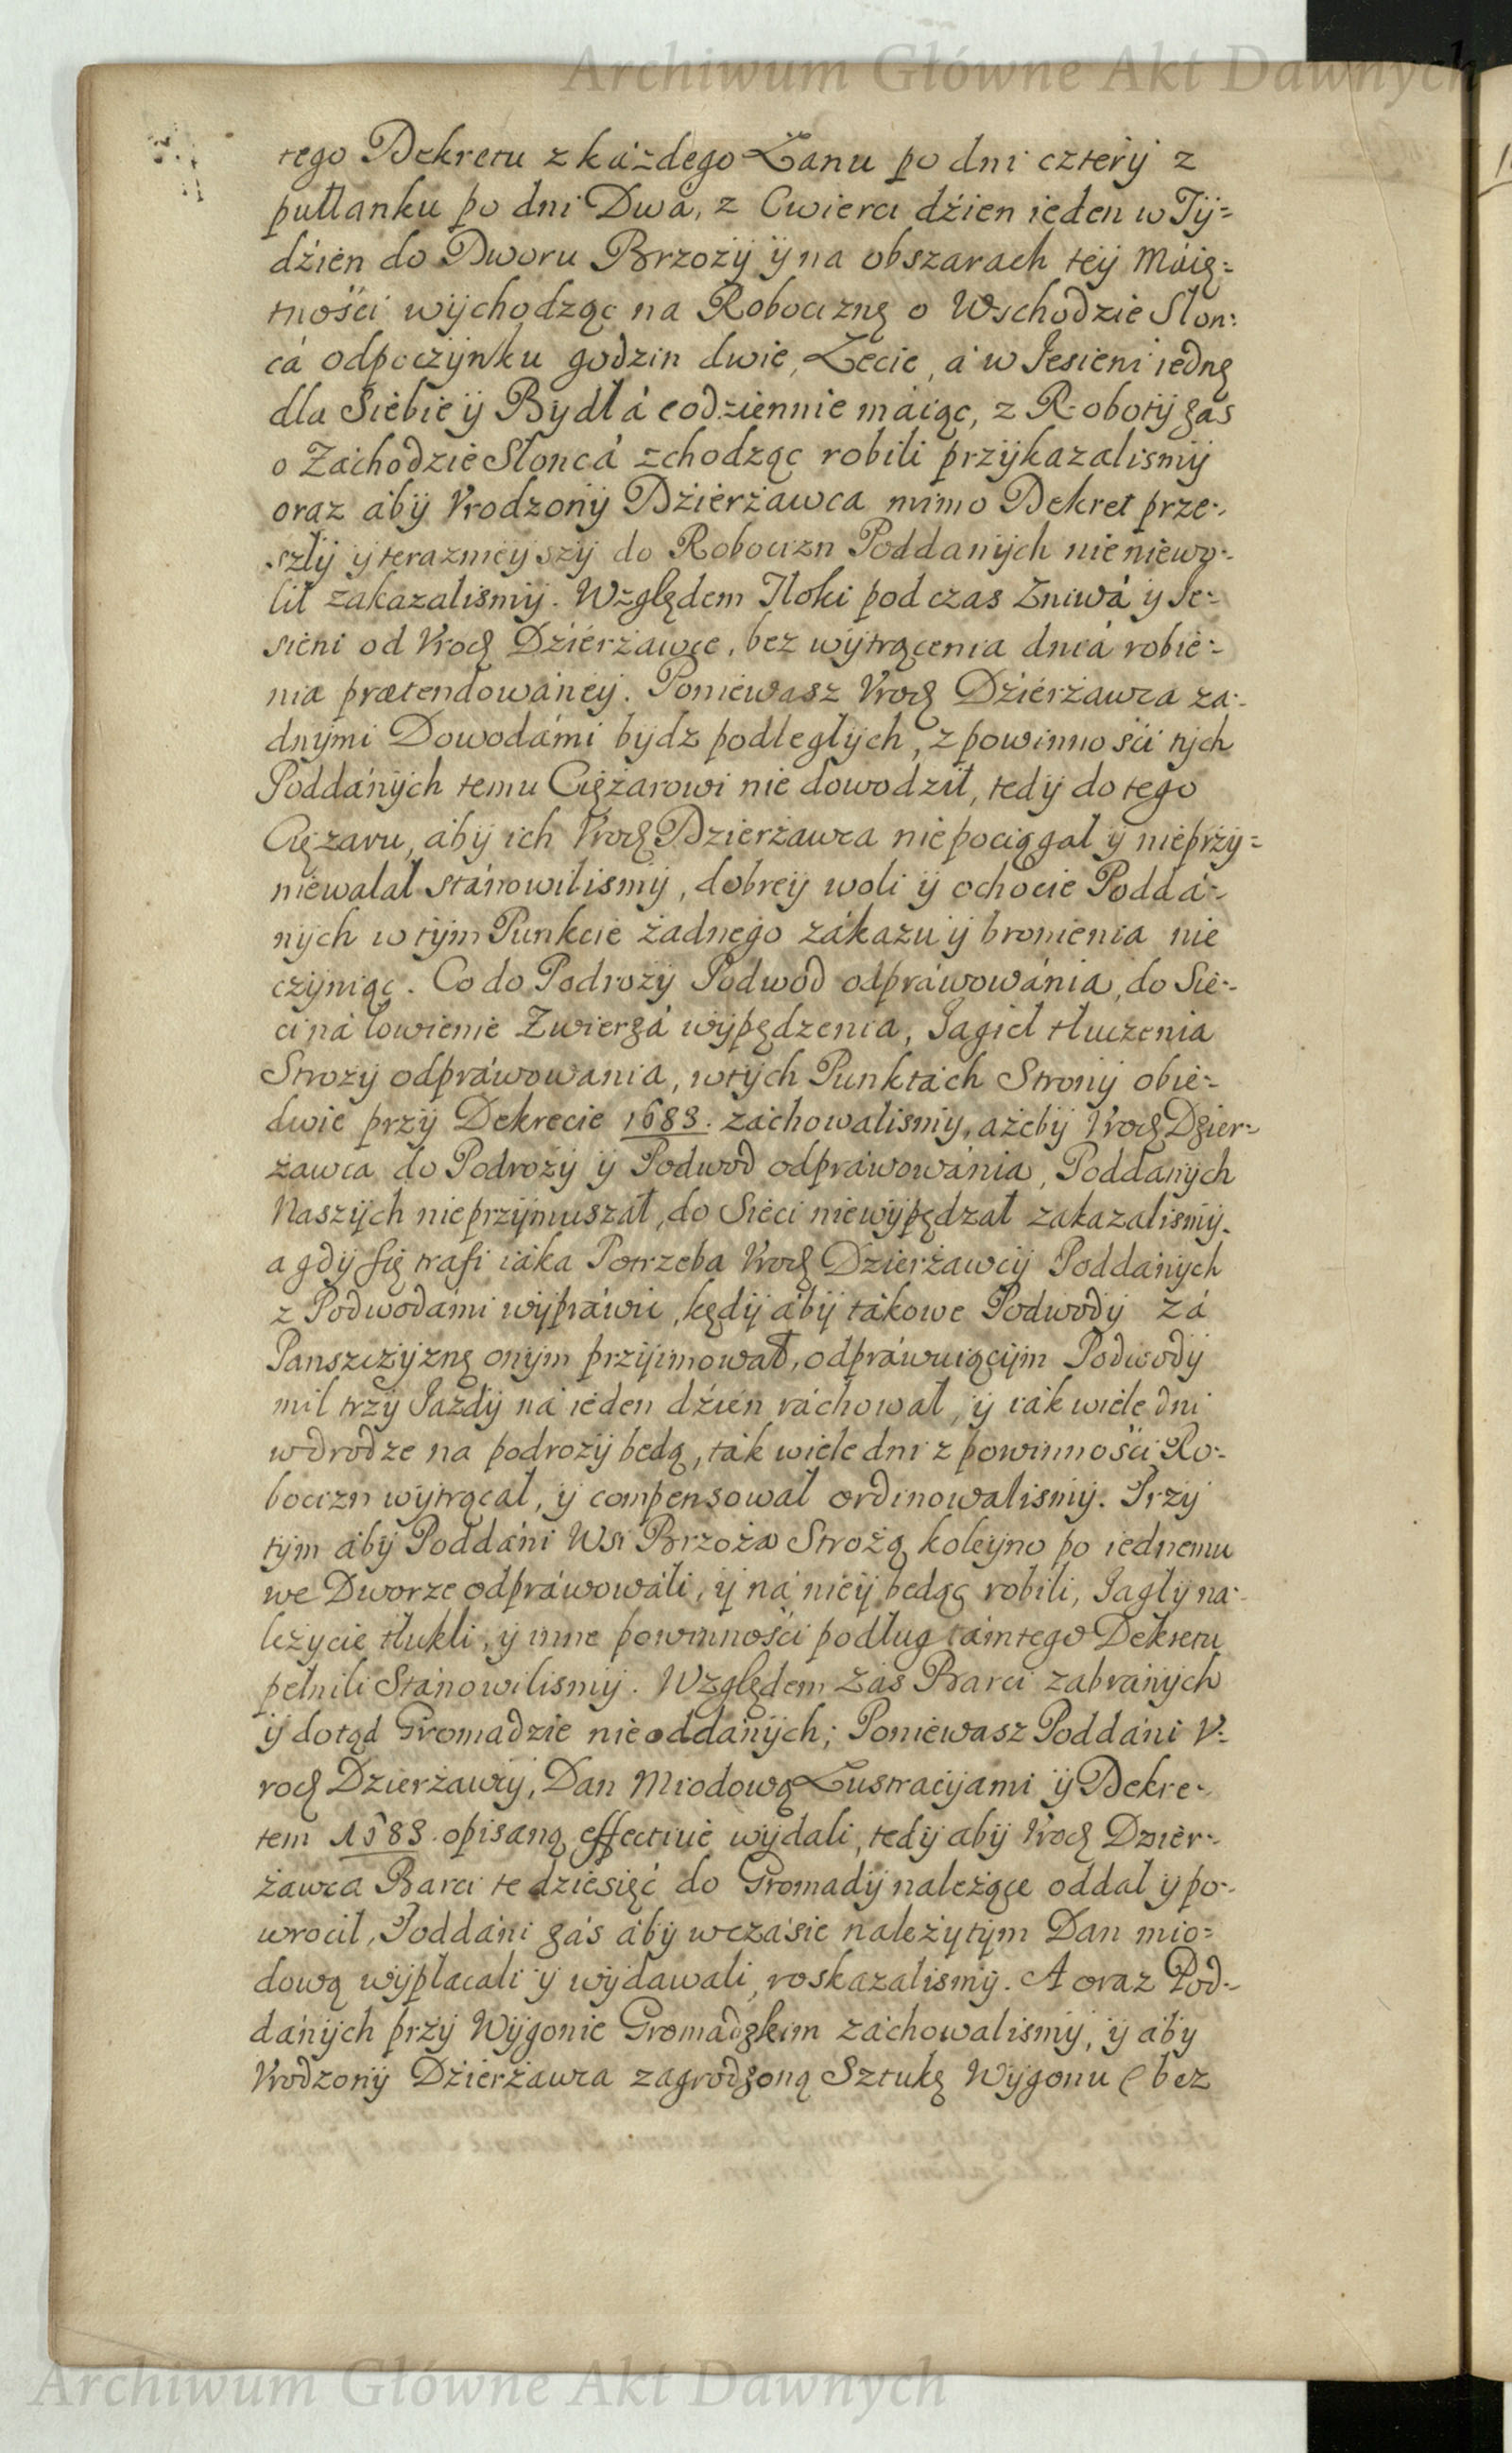 Archiwum Główne Akt Dawnych
tego Dekretu z każdego Łanu po dni cztery z
pułłanku po dni Dwa, z Cwierci dźien ieden w Ty=
dźien do Dworu Brzozy ÿ na obszarach teÿ Máię=
tnośći wychodząc na Roboćiznę o Wschodzie Słon:
cá odpoczÿnku godzin dwie, Lecie, á w Jesieni iednę
dla Siebie ÿ Bydłá codziennie máiąc, z Roboty zas
o Zachodzie Słoncá zchodząc robili przykazalismÿ
oraz aby Vrodzony Dźierżawca mimo Dekret prze-
szłÿ ÿ teraznieyszÿ do Robocizn Poddanÿch nie niewo-
lił zakazalismÿ. Względem Tłoki pod czas Zniwá ÿ Je-
sieni od Vrodz Dźierżawce, bez wytrącenia dniá robie-
nia prætendowáneÿ. Poniewasz Vrodz Dźierżawca za-
dnymi Dowodámi bydz podległÿch, z powinnośći tÿch
Poddánÿch temu Ciężarowi nie dowodził, tedÿ do tego
Ciężaru, abÿ ich Vrodz Dzierżawca nie pociągał ÿ nie przÿ=
niewalał stánowilismÿ, dobreÿ woli ÿ ochocie Poddá-
nÿch w tÿm Punkcie żadnego zákazu ÿ bronienia nie
czÿniąc. Co do Podrozÿ Podwod odpráwowánia, do Sie-
ci ná łowienie Zwierzá wÿpędzenia, Jagieł tłuczenia
Strozÿ odpráwowania, w tÿch Punktách Stronÿ obie-
dwie przÿ Dekrecie 1683. záchowalismÿ, ażebÿ Vrodz Dzier-
żawca do Podrozÿ ÿ Podwod odpráwowánia, Poddanÿch
Naszÿch nie przÿmuszał, do Sieci nie wÿpędzał zakazalismÿ.
a gdÿ się trafi iáka Potrzeba Vrodz Dzierżawcÿ Poddanÿch
z Podwodámi wÿpráwić, kędÿ ábÿ tákowe Podwodÿ zá
Panszczÿznę onÿm przÿimował, odpráwuiącÿm Podwodÿ
mil trzÿ Jazdÿ ná ieden dźień ráchował, ÿ iák wiele dni
w drodze na podrozÿ bedą, ták wiele dni z powinnośći Ro-
boćizn wÿtrącał, ÿ compensował ordinowalismÿ. Przÿ
tÿm ábÿ Poddáni Wsi Brzoża Strożą koleÿno po iednemu
we Dworze odpráwowáli, ÿ ná nieÿ bedąc robili, Jagłÿ na-
leżycie tłukli, ÿ inne powinnośći podług támtego Dekretu
pełnili Stánowilismÿ. Względem zás Barci zabránÿch
ÿ dotąd Gromadzie nie oddanÿch; Poniewasz Poddáni V-
rodz Dzierżawcÿ, Dan Miodową Lustracÿami ÿ Dekre-
tem 1583. opisaną effective wÿdali, tedÿ abÿ Vrodz Dzier-
żawca Barci te dziesięć do Gromadÿ należące oddał ÿ po-
wrocił, Poddáni zás ábÿ w czásie należÿtÿm Dan mio=
dową wÿpłacali ÿ wÿdawali, roskazalismÿ. A oraz Pod-
dánÿch przÿ Wÿgonie Gromadzkim záchowalismÿ, ÿ ábÿ
Vrodzonÿ Dźierżawca zagrodzoną Sztukę Wÿgonu (bez
Archiwum Główne Akt Dawnych